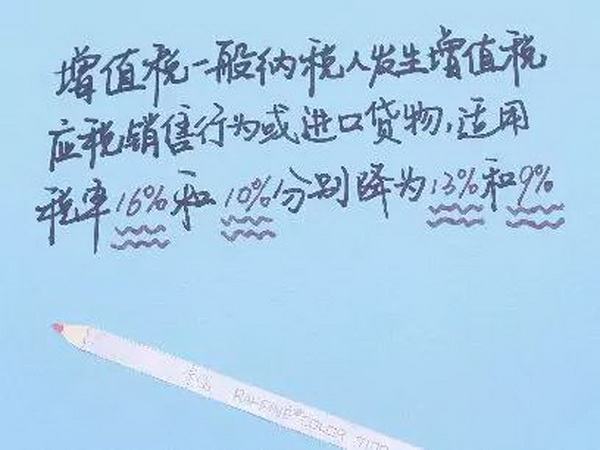 增值税一般纳税人发生增值税
应税销售行为或进口货物,适用
税率16%和10%分别降为13%和9%
COLOR